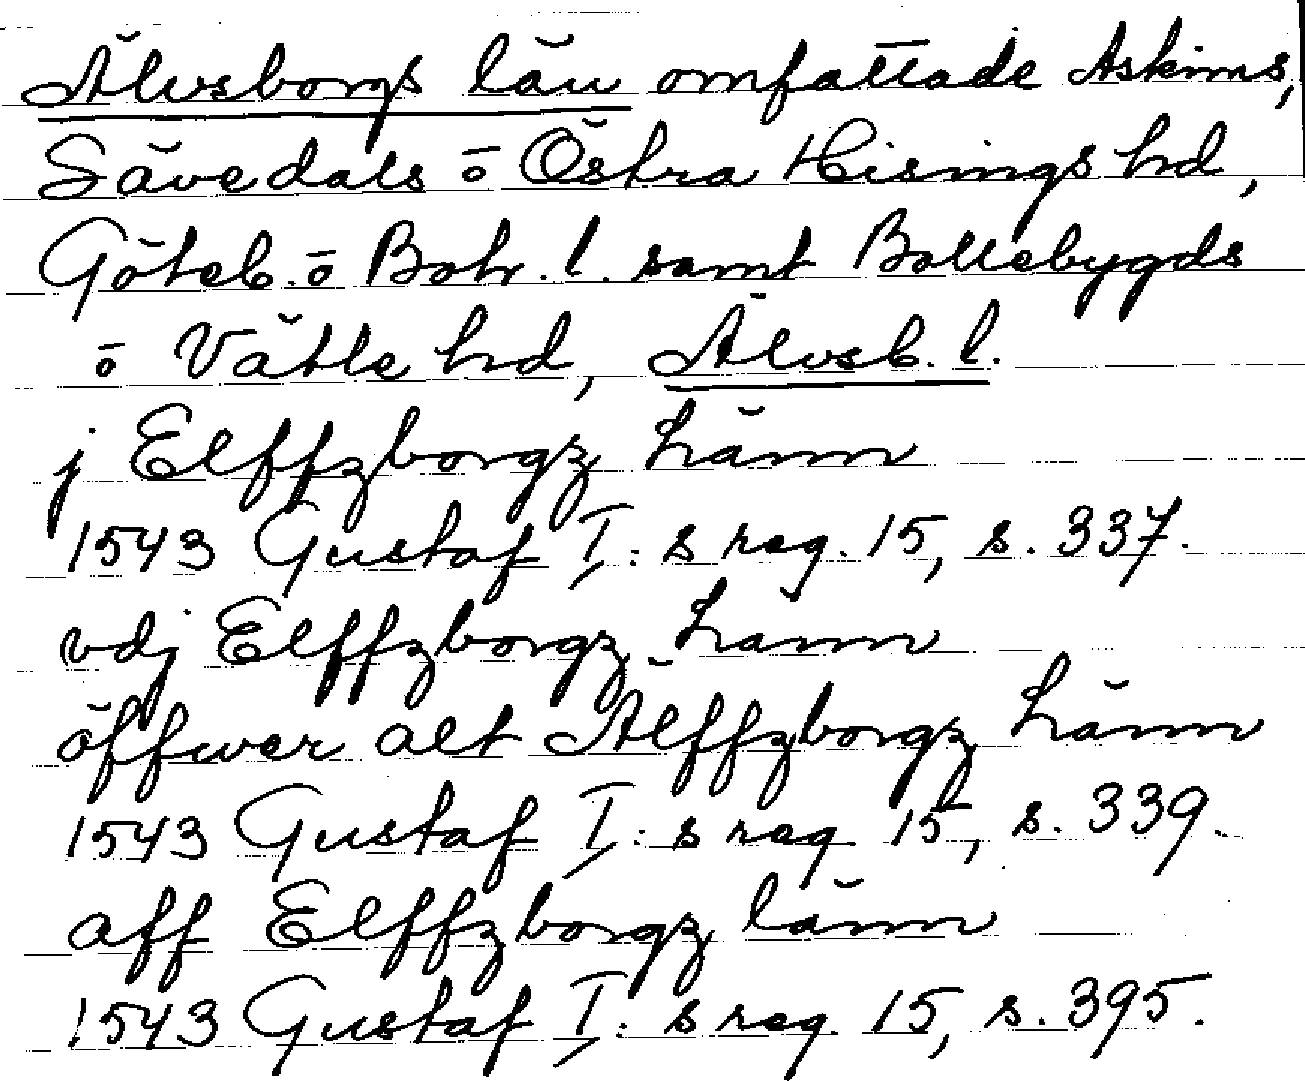 Älvsborgs län omfattade Askims,
Sävedals o Östra Hisings hd,
Göteb. o Boh. l. samt Bollebygds
o Vättle hd, Älvsb. l.
j Elffzborgz Länn
1543 Gustaf I:s reg. 15, s. 337.
vdj Elffzborgz Länn
öffwer alt Älffzborgz Länn
1543 Gustaf I:s reg 15, s. 339.
aff Elffzborgz länn
1543 Gustaf I:s reg. 15, s. 395.